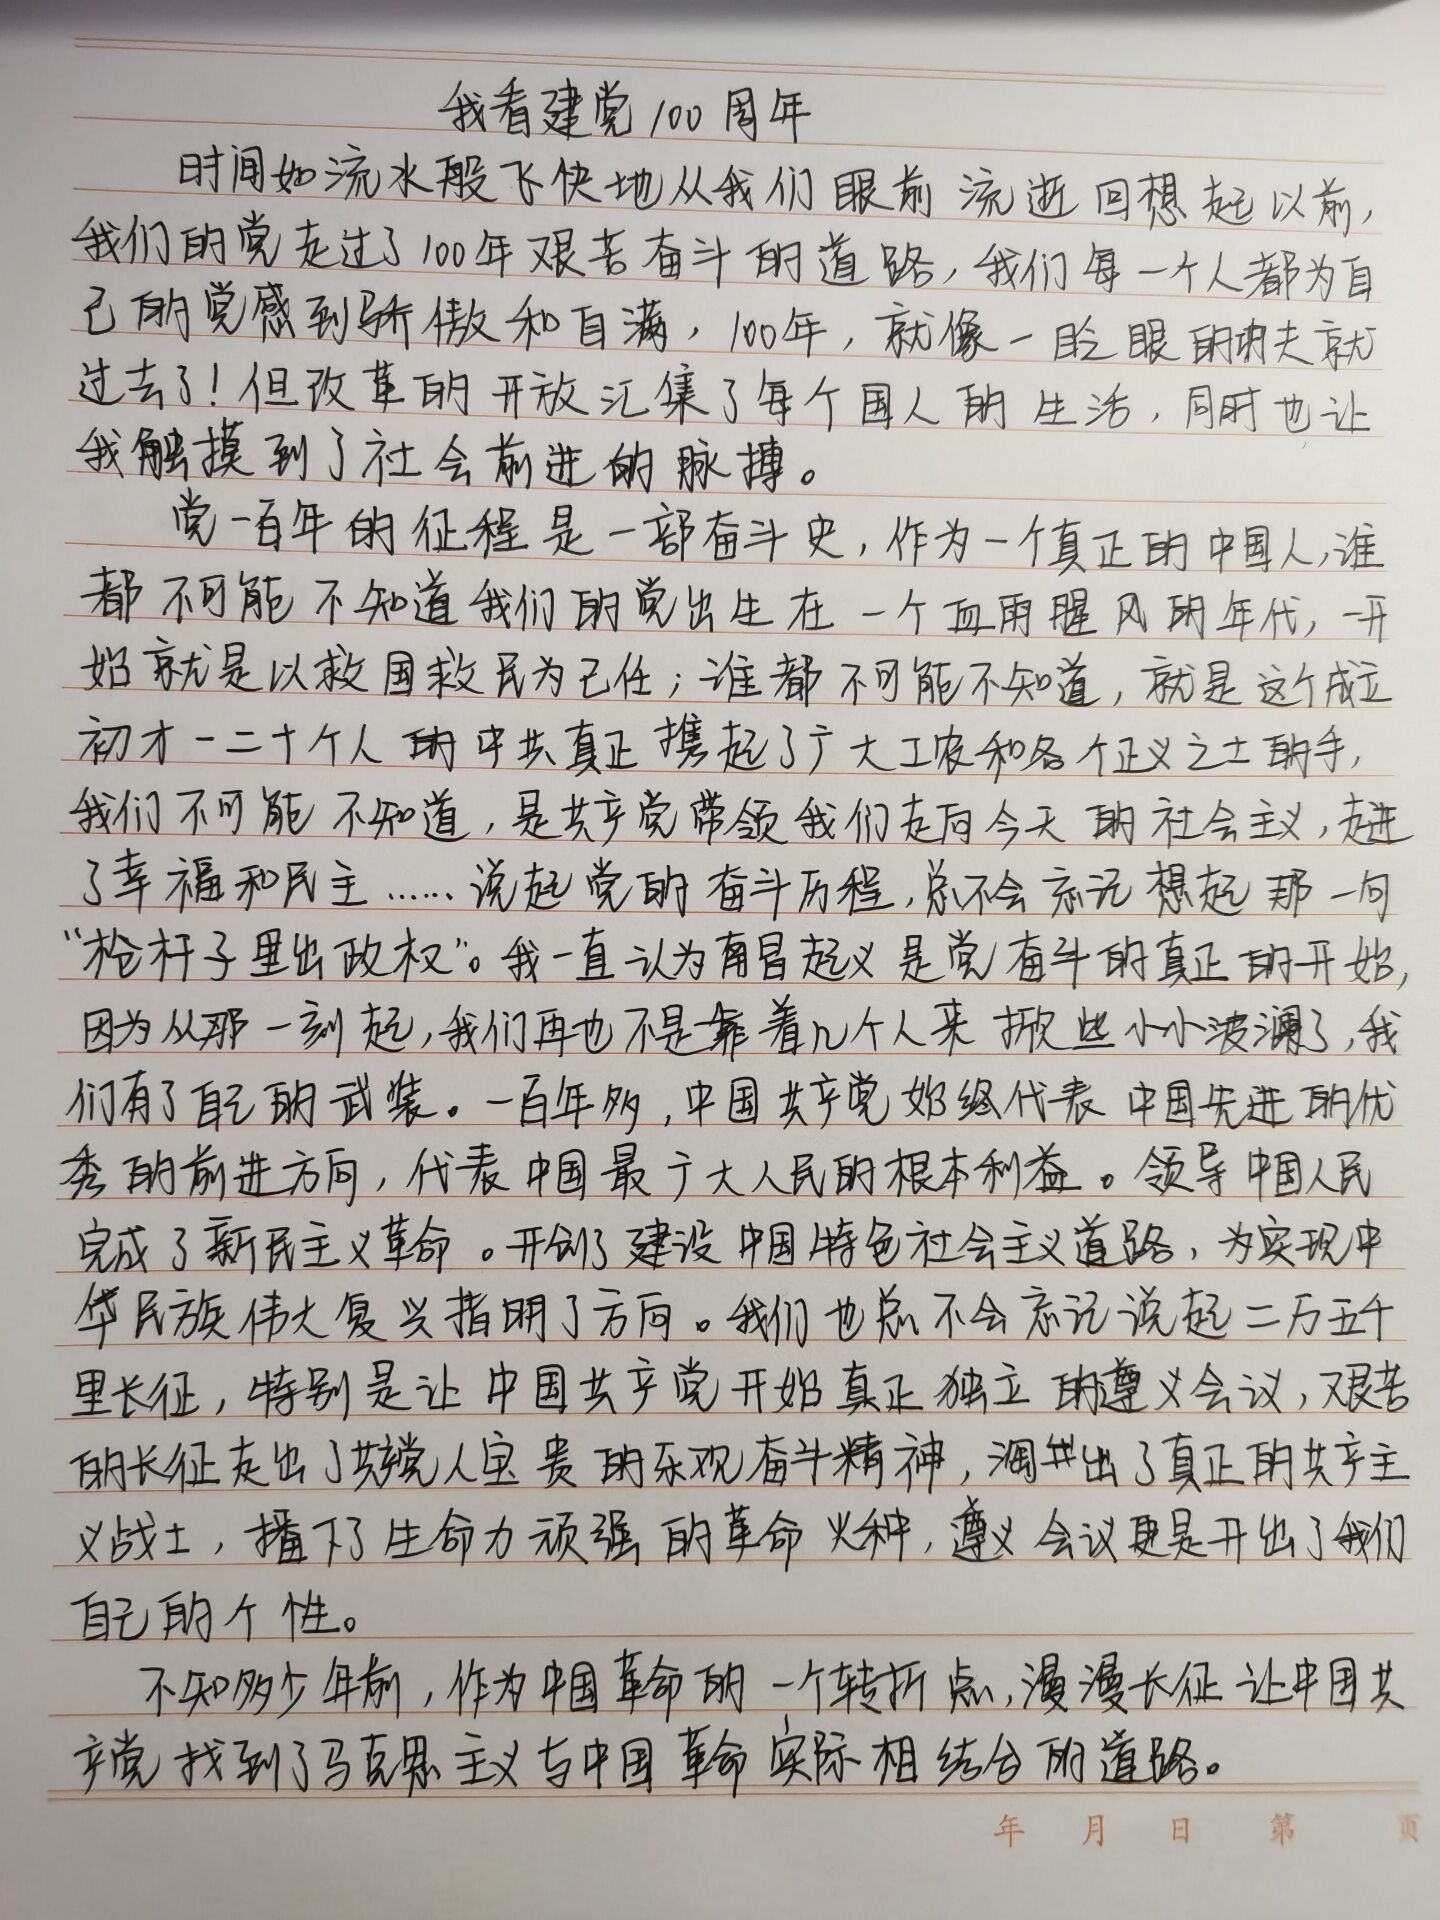 我看建党100周年
时间如流水般飞快地从我们眼前流逝回想起以前,
我们的党走过了100年艰苦奋斗的道路,我们每一个人都为自
己的党感到骄傲和自满,100年,就像一眨眼的功夫就
过去了!但改革的开放汇集了每个国人的生活,同时也让
我触摸到了社会前进的脉搏。
党一百年的征程是一部奋斗史,作为一个真正的中国人,谁
都不可能不知道我们的党出生在一个血雨腥风的年代,一开
始就是以救国救民为己任;谁都不可能不知道,就是这个成立
初才一二十个人的中共真正携起了广大工农和各个正义之士的手,
我们不可能不知道,是共产党带领我们走向今天的社会主义,走进
了幸福和民主……说起党的奋斗历程,总不会忘记想起那一句
“枪杆子里出政权”。我一直认为南昌起义是党奋斗的真正的开始,
因为从那一刻起,我们再也不是靠着几个人来掀些小小波澜了,我
们有了自己的武装。一百年多,中国共产党始终代表中国先进的优
秀的前进方向,代表中国最广大人民的根本利益。领导中国人民
完成了新民主义革命。开创了建设中国特色社会主义道路,为实现中
华民族伟大复兴指明了方向。我们也总不会忘记说起二万五千
里长征,特别是让中国共产党开始真正独立的遵义会议,艰苦
的长征走出了共党人宝贵的乐观奋斗精神,涌出了真正的共产主
义战士,播下了生命力顽强的革命火种,遵义会议更是开出了我们
自己的个性。
不知多少年前,作为中国革命的一个转折点,漫漫长征让中国共
产党找到了马克思主义与中国革命实际相结合的道路。
年 月 日 第 页